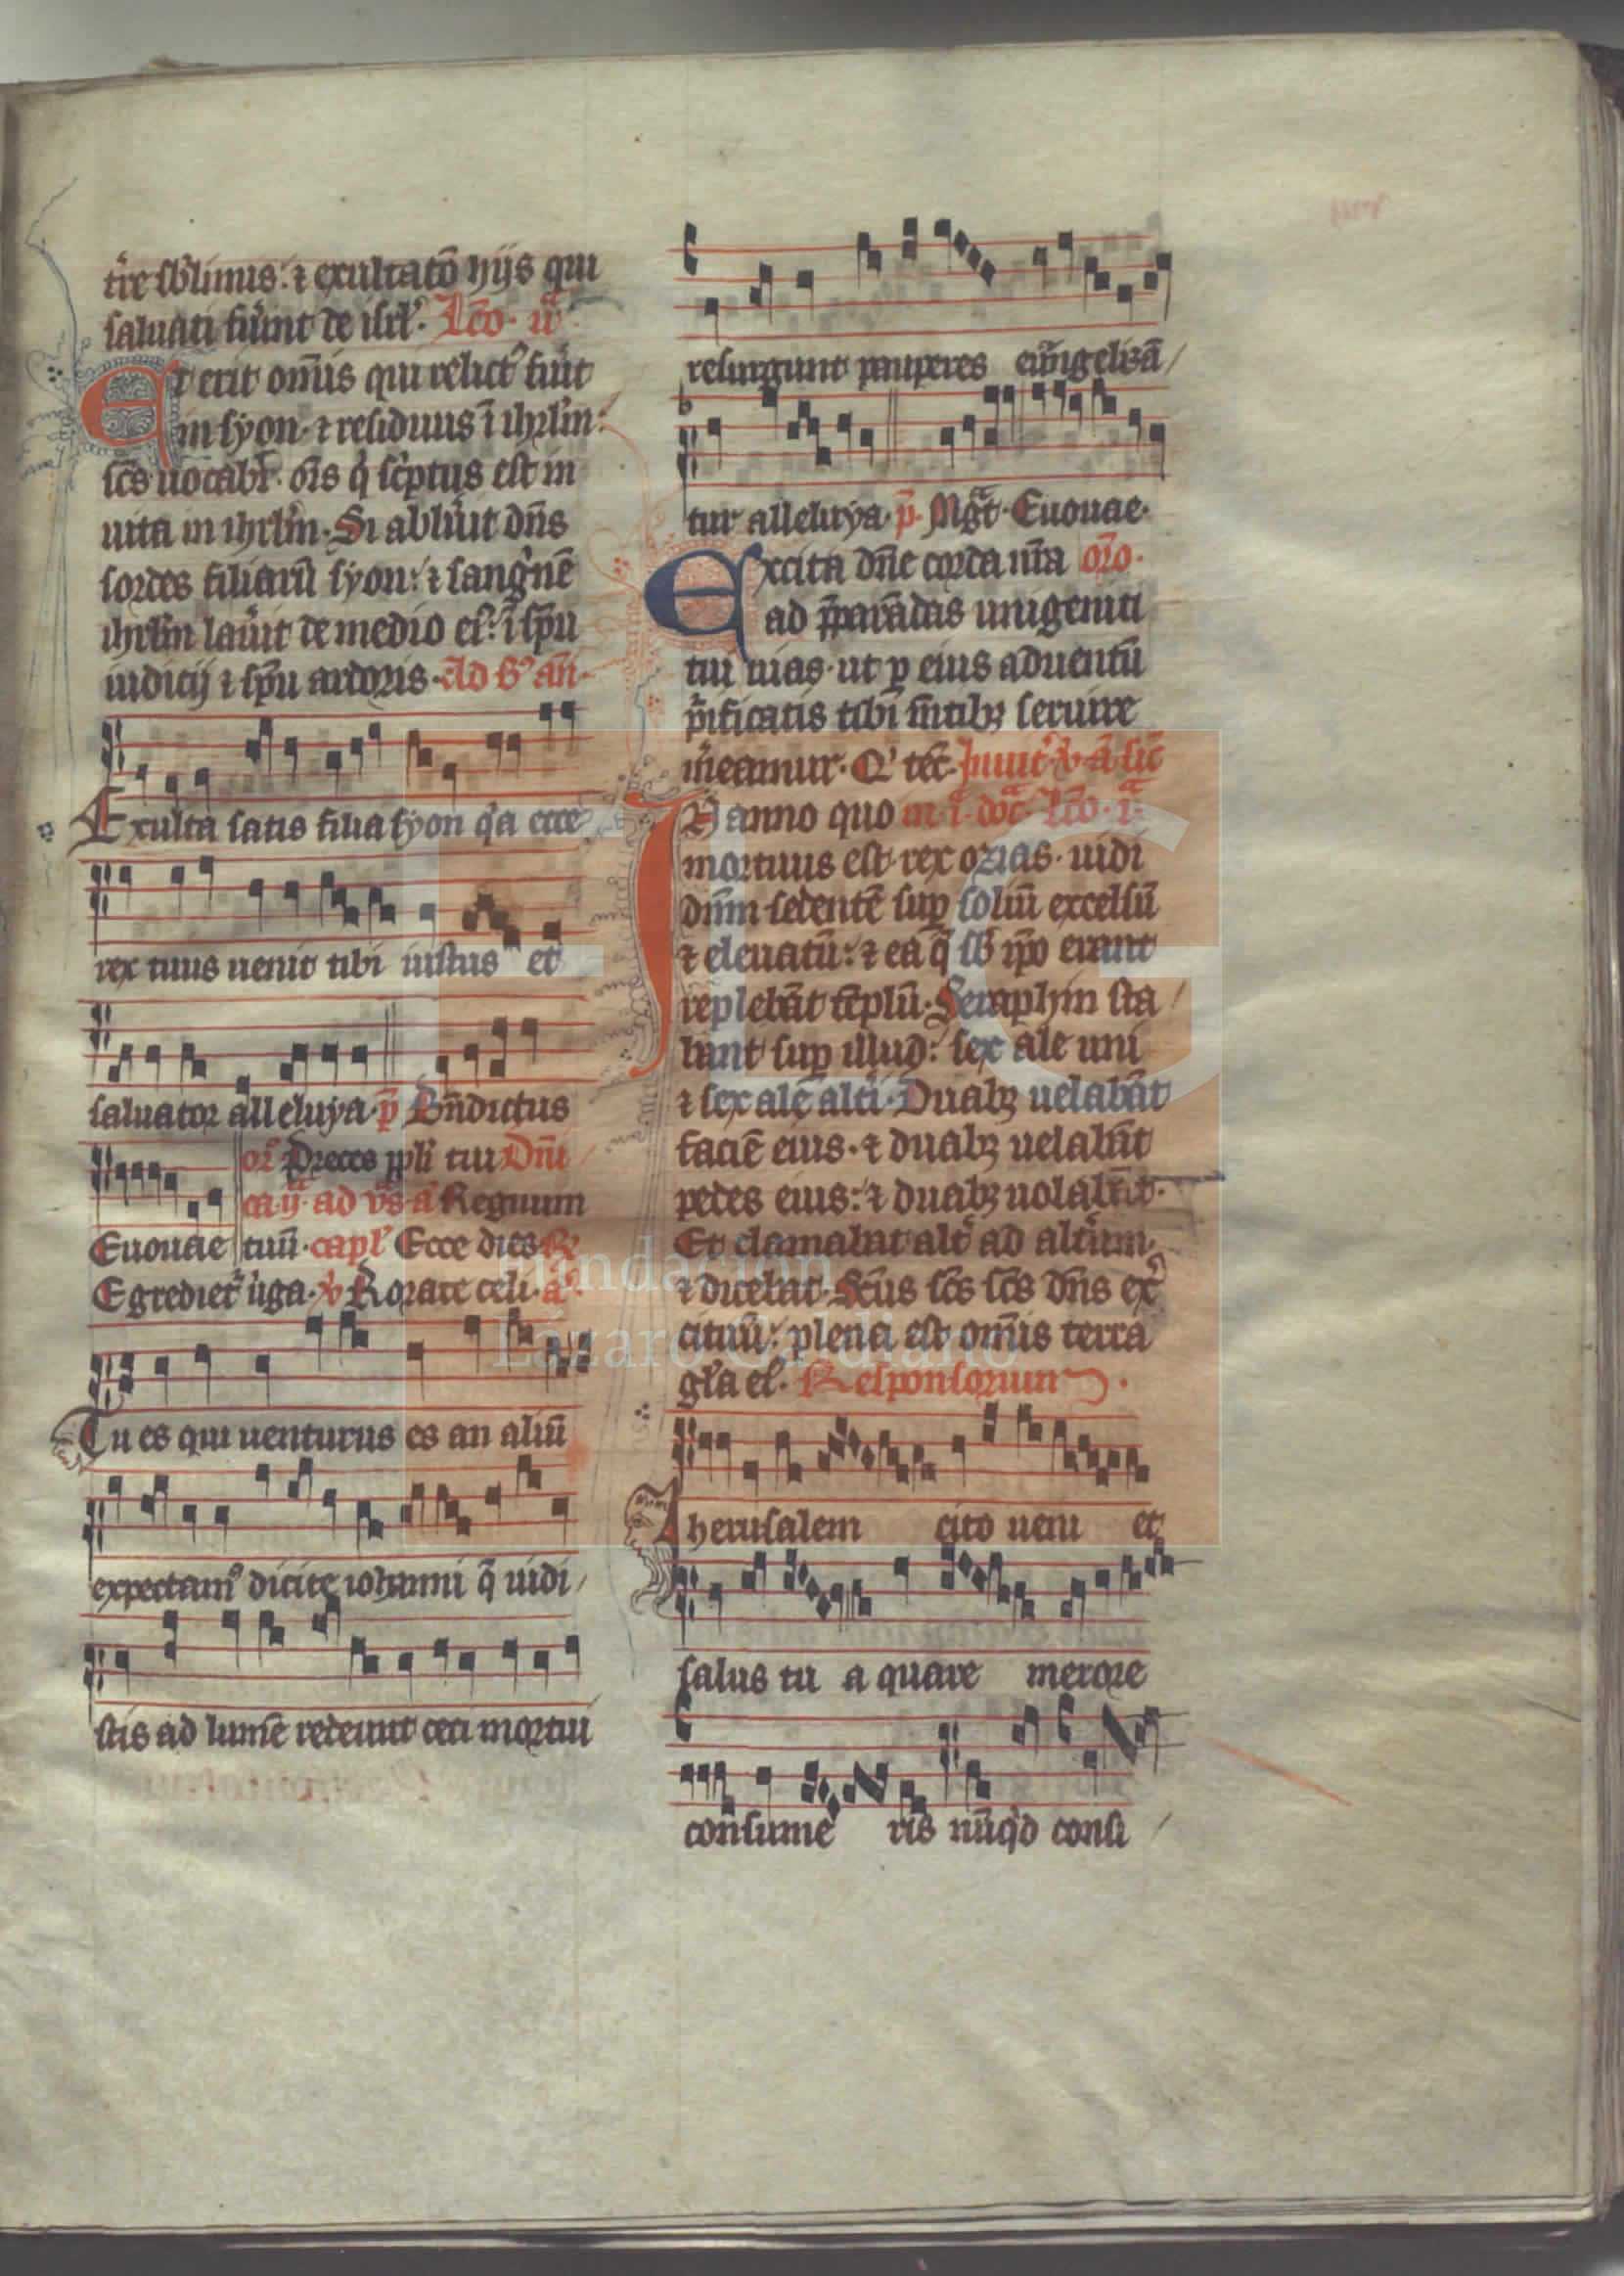 t͛re sb̓limis. ⁊ exultatō hijs qui
saluati fu͛int de isrl̓. Lc̄o. uª
Et erit om̄is qui relict᷒ fu͛it
in syon. ⁊ residuus ī ihrl̓m:
sc̄s uocabr̄. oīs q̇ sc͛ptus est in
uita in ihrl̓m. Si abluͥt dn̄s
sordes filiarū syon: ⁊ sangͥnē
ihrl̓m lau͛it de medio ei᷒: ī sp̄u
iudicij ⁊ sp̄u ardoris. Ad b᷒ an̄.
Exulta satis filia syon qͥa ecce
rex tuus uenit tibi iustus et
saluator alleluya. p̄ Bn̄dictus
or̄ Preces ppl̓i tui Dn̄i
ca ij. ad vs̄ aª Regnum
Euouae tuū. capl̓ Ecce dies R̷
Egrediet᷑ ůga. v̷ Rorate celi. aª.
Tu es qui uenturus es an aliū
expectam᷒ dicite iohanni q̄ uidi/
stis ad lumē redeunt ceci mortui
resurgunt pauperes euāngelizā/
tur alleluya. p̄. Mgᷓt. Euouae.
Excita dn̄e corda nr̄a or̄o.
ad p̄parādas unigeniti
tui uias. ut p̱ eius aduentū
pͥificatis tibi mn̄tibꝫ seruire
m͛eamur. Q' tec̄. Inuit᷑ v̷ aª sīc
In anno quo in iº. noc̄. Lc̄o. iª
mortuus est rex ozias. uidi
dn̄m sedentē sup̱ soliū excelsū
⁊ eleuatū: ⁊ ea q̄ sb̓ ip̄o erant
replebāt tēplū. Seraphin sta/
bant sup̱ illud: sex ale uni
⁊ sex ale alt͛i. Duabꝫ uelabāt
faciē eius. ⁊ duabꝫ uelabāt
pedes eius: ⁊ duabꝫ uolabāt.
Et clamabat alt͛ ad alt͛um.
⁊ dicebat. Sc̄us sc̄s sc̄s dn̄s ex͛
cituū: plena est om̄is terra
gl̓a ei᷒. Responsorium.
Iherusalem cito ueni et
salus tu a quare merore
consume ris nūqͥd consi /
Fundación
Lázaro Galdiano